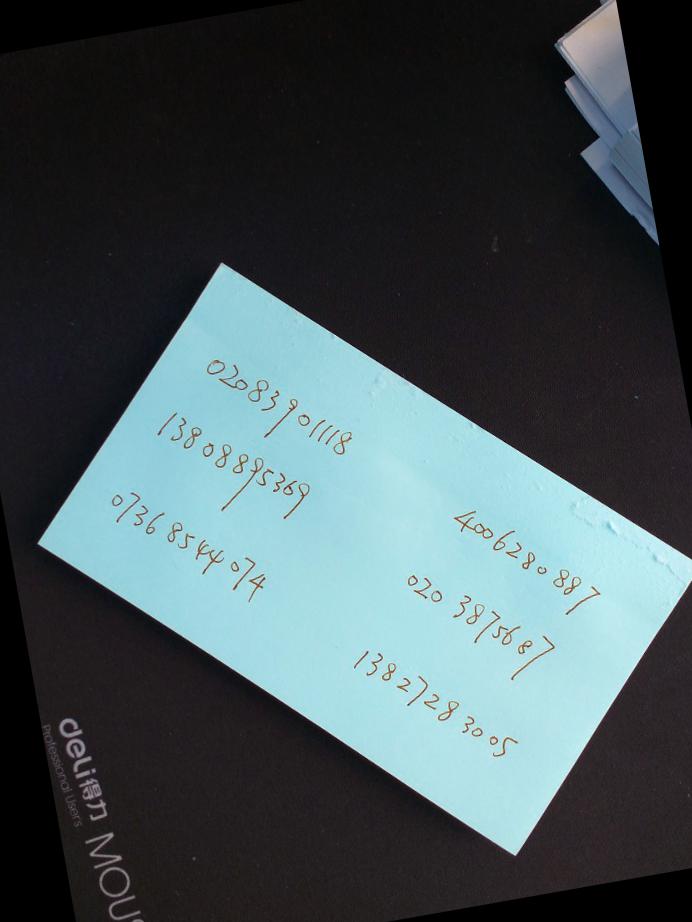 02083901118
13808895369
07368544074
4006280887
020 3875687
13827283005
deli得力
Professional Users
MOUS